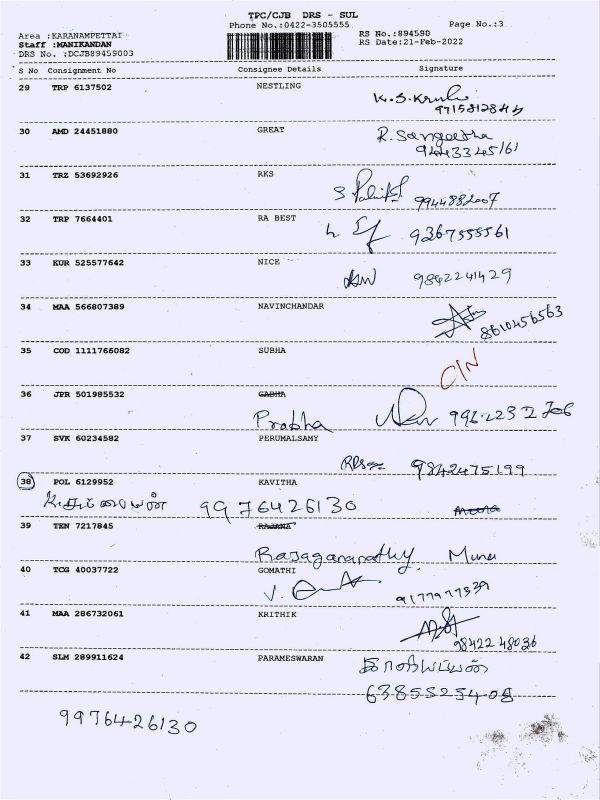 TPC/CJB DRS - SUL
Phone No.:0422-3505555 Page No.:3
Area :KARANAMPETTAI RS No.:894590
Staff :MANIKANDAN RS Date:21-Feb-2022
DRS No. :DCJB89459003
S No Consignment No Consignee Details Signature
29 TRP 6137502 NESTLING
K.S.
30 AMD 24451880 GREAT
R. Sangeetha
9443345161
31 TRZ 53692926 RKS
9944882007
32 TRP 7664401 RA BEST
9367555561
33 KUR 525577642 NICE
9842241429
34 MAA 566807389 NAVINCHANDAR
8610456563
35 COD 1111766082 SUBHA
C/N
36 JPR 501985532 GABHA
Prabha
37 SVK 60234582 PERUMALSAMY
9842475199
38 POL 6129952 KAVITHA
9976426130
39 TEN 7217845 RAJANA
Rajaganapathy
40 TCG 40037722 GOMATHI
41 MAA 286732061 KRITHIK
9842248036
42 SLM 289911624 PARAMESWARAN
6385525408
9976426130